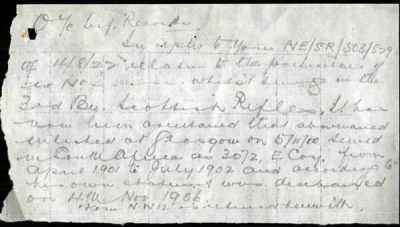 O i/c Inf. Records
In reply to yours NE/SR/503/579
of 14/8/22 relative to the particulars of
serving in the
3rd Bn. Scottish Rifles, It has
now been ascertained that abovenamed
enlisted at Glasgow on 5/11/00 served
in South Africa as 3072, E Coy. from
April 1901 to July 1902 and according to
his own statement was discharged
on 4th Nov 1906.
Form herewith.